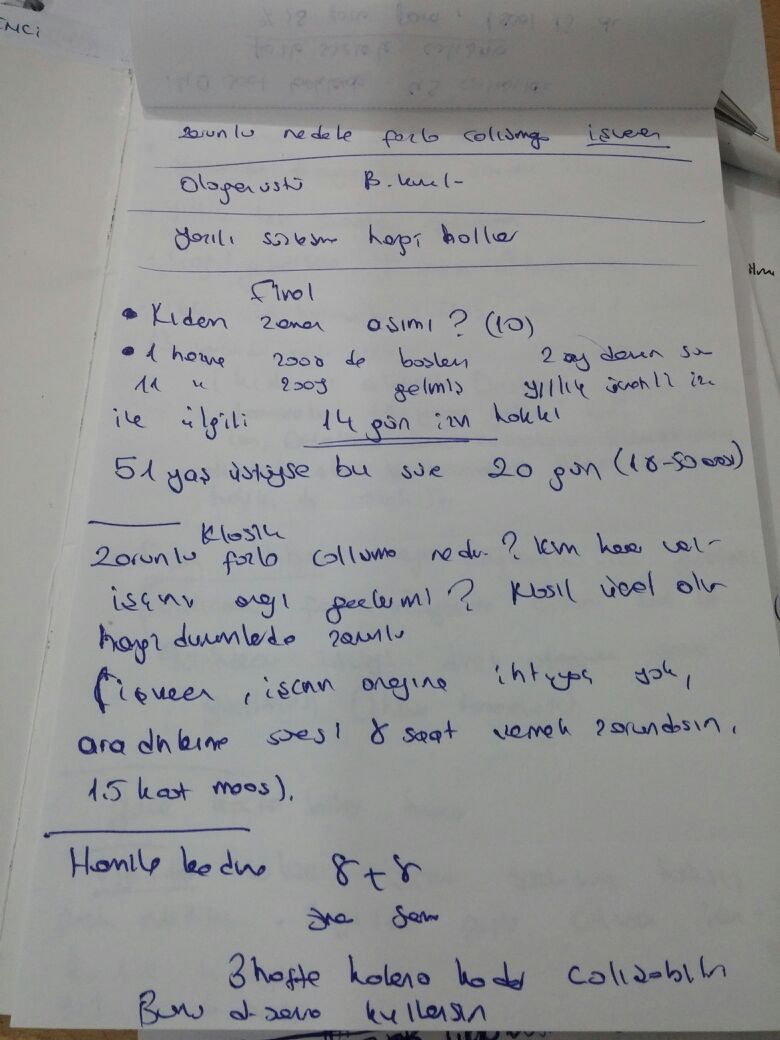 ENCİ
zorunlu nedenle fazla calisma işveren
Olağanüstü B. kurul-
yazılı sözleşme hangi haller
Final
• Kıdem zaman aşımı? (10)
• 1 hazne 2000 de baslan 2 ay devam
11 " 2009 gelmis yıllık ücretli izn
ile ilgili 14 gün izn hakkı
51 yaş üstüyse bu süre 20 gün (18-50 arası)
Klasik
Zorunlu fazla calisma nedir? kim karar
işçinin onayı gerekirmi? Klasik
hangi durumlarda zorunlu
(işveren, işçinin onayına ihtiyaç yok,
ara dinlenme süresi 8 saat vermek zorundasın.
1.5 kat maaş).
Hamile kadın 8+8
önce sonra
3 hafta kalana kadar calışabilir
Bunu d. sonra kullansın